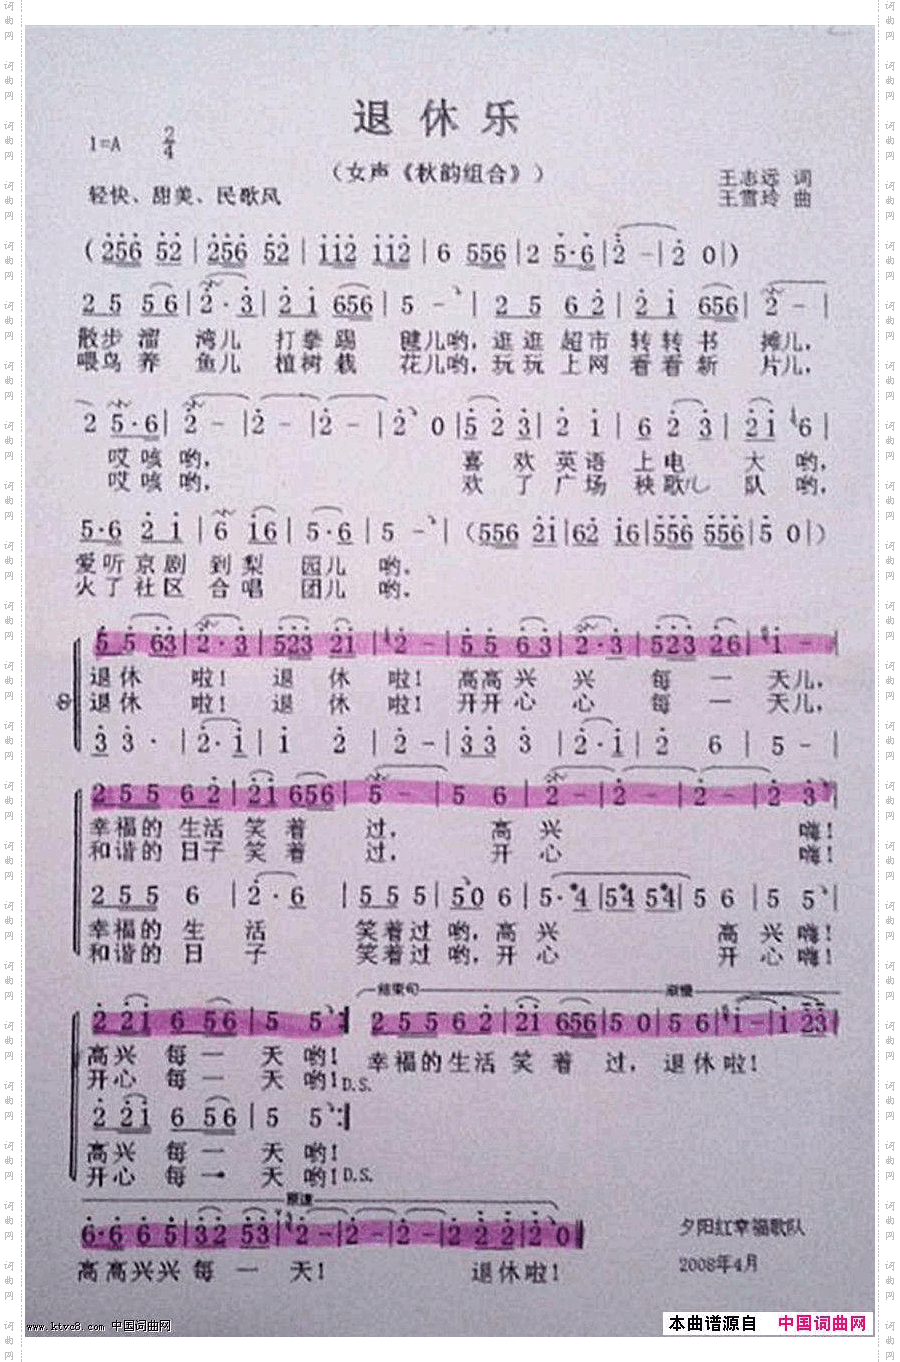 退休乐
1=A 2/4
（女声《秋韵组合》）
王志远 词
轻快、甜美、民歌风
王雪玲 曲
(256 52 | 256 52 | 112 112 | 6 556 | 2 5·6 | 2 - | 2 0 |)
2 5 56 | 2·3 | 21 656 | 5 - | 2 5 62 | 21 656 | 2 - |
散步 溜 湾儿 打拳踢 毽儿哟，逛逛 超市 转转书 摊儿，
喂鸟 养 鱼儿 植树栽 花儿哟，玩玩上网 看看新 片儿，
2 5·6 | 2 - | 2 - | 2 - | 2 0 | 5 2 3 | 2 1 | 6 2 3 | 21 6 |
哎咳哟， 喜 欢 英语 上电 大 哟，
哎咳哟， 欢 了 广场 秧歌儿 队 哟，
5·6 21 | 6 16 | 5·6 | 5 - | (556 21 | 62 16 | 556 556 | 5 0 |)
爱听京剧 到梨 园儿 哟．
火了社区 合唱 团儿 哟．
5 5 63 | 2·3 | 523 21 | 2 - | 5 5 63 | 2·3 | 523 26 | 1 - |
退休 啦！ 退 休 啦！高高兴 兴 每 一 天儿，
退休 啦！ 退 休 啦！开开心 心 每 一 天儿，
3 3 · | 2·1 | 1 2 | 2 - | 33 3 | 2·1 | 2 6 | 5 - |
255 62 | 21 656 | 5 - | 5 6 | 2 - | 2 - | 2 - | 2 3 |
幸福的 生活 笑着 过， 高 兴 嗨！
和谐的 日子 笑着 过， 开 心 嗨！
255 6 | 2·6 | 55 5 | 50 6 | 5·4 | 54 54 | 5 6 | 5 5 |
幸福的 生 活 笑着过 哟，高 兴 高 兴嗨！
和谐的 日 子 笑着过 哟，开 心 开 心嗨！
结束句 渐慢
2 21 6 56 | 5 5 :| 255 62 | 21 656 | 5 0 | 5 6 | 1 - | 1 23 |
高兴 每一 天 哟！ 幸福的生活 笑 着 过， 退休啦！
开心 每一 天 哟！D.S.
2 21 6 56 | 5 5 :|
高兴 每一 天 哟！
开心 每一 天 哟！D.S.
原速
6·6 65 | 32 53 | 2 - | 2 - | 2 - | 2 22 | 2 0 ‖
高高兴兴 每 一 天！ 退休啦！
夕阳红幸福歌队
2008年4月
www.ktvc8.com 中国词曲网
本曲谱源自 中国词曲网